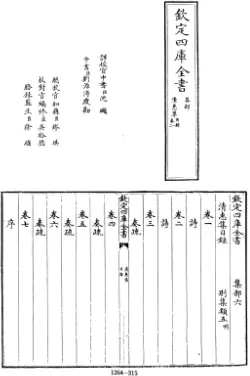 欽定四庫全書
集部
清惠集
詳校官中書臣沈颺
中書臣劉源溥覆勘
總校官知縣臣
校對官編修臣吳裕德
謄錄監生臣徐
欽定四庫全書
集部六
清惠集目錄
別集類五明
卷一
詩
卷二
詩
卷三
奏疏
欽定四庫全書
卷四
奏疏
卷五
奏疏
卷六
奏疏
卷七
序
1264-315